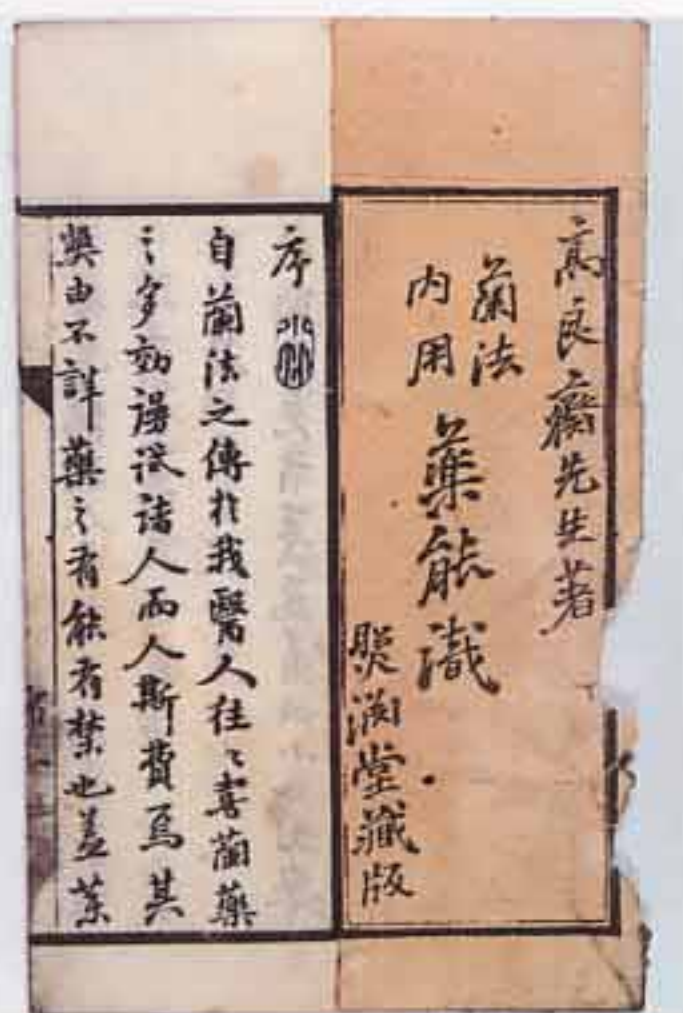 高良齋先生著
蘭法
内用
藥能識
照淵堂藏版
序
自蘭法之傳於我醫人往〻喜蘭藥
〻多効漫試諸人而人斯費焉其
弊由不詳藥〻有能有禁也蓋藥